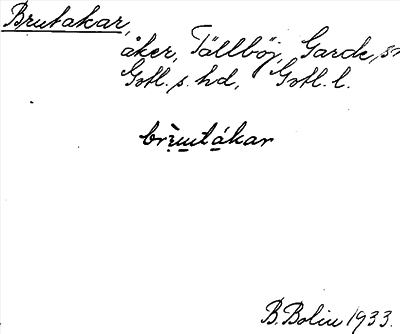 Brutakar,
åker, Tällböj, Garde, sn
Gotl. s. hd, Gotl. l.
B. Bolin 1933.